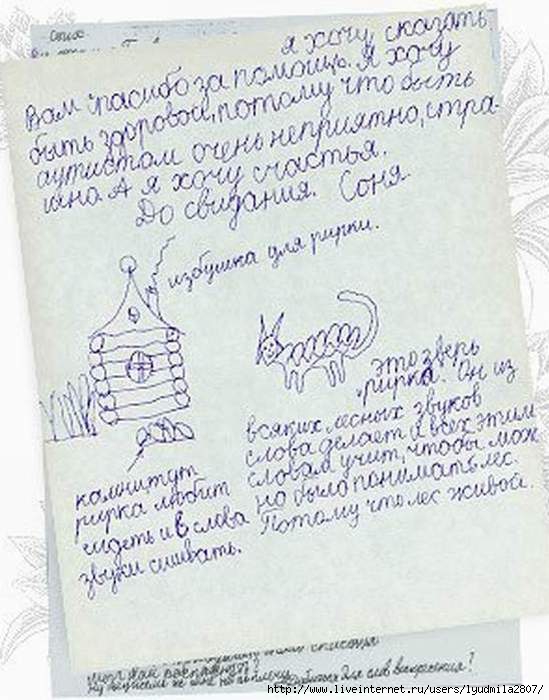 Стих
я хочу сказать,
Вам спасибо за помощь. Я хочу
быть здоровой, потому что быть
аутистом очень неприятно, стра-
шно. А я хочу счастья.
До свидания. Соня.
избушка для рирки.
это зверь
рирка. Он из
всяких лесных звуков
слова делает и всех этим
словам учит, чтобы мож
но было понимать лес.
Потому что лес живой.
камни, тут
рирка любит
сидеть и в слова
звуки сшивать.
для слов
http://www.liveinternet.ru/users/lyudmila2807/